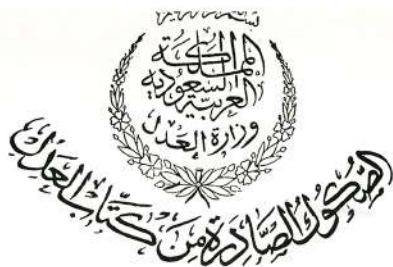 المملكة
العربية السعودية
وزارة العدل
الصكوك الصادرة من كتاب العدل